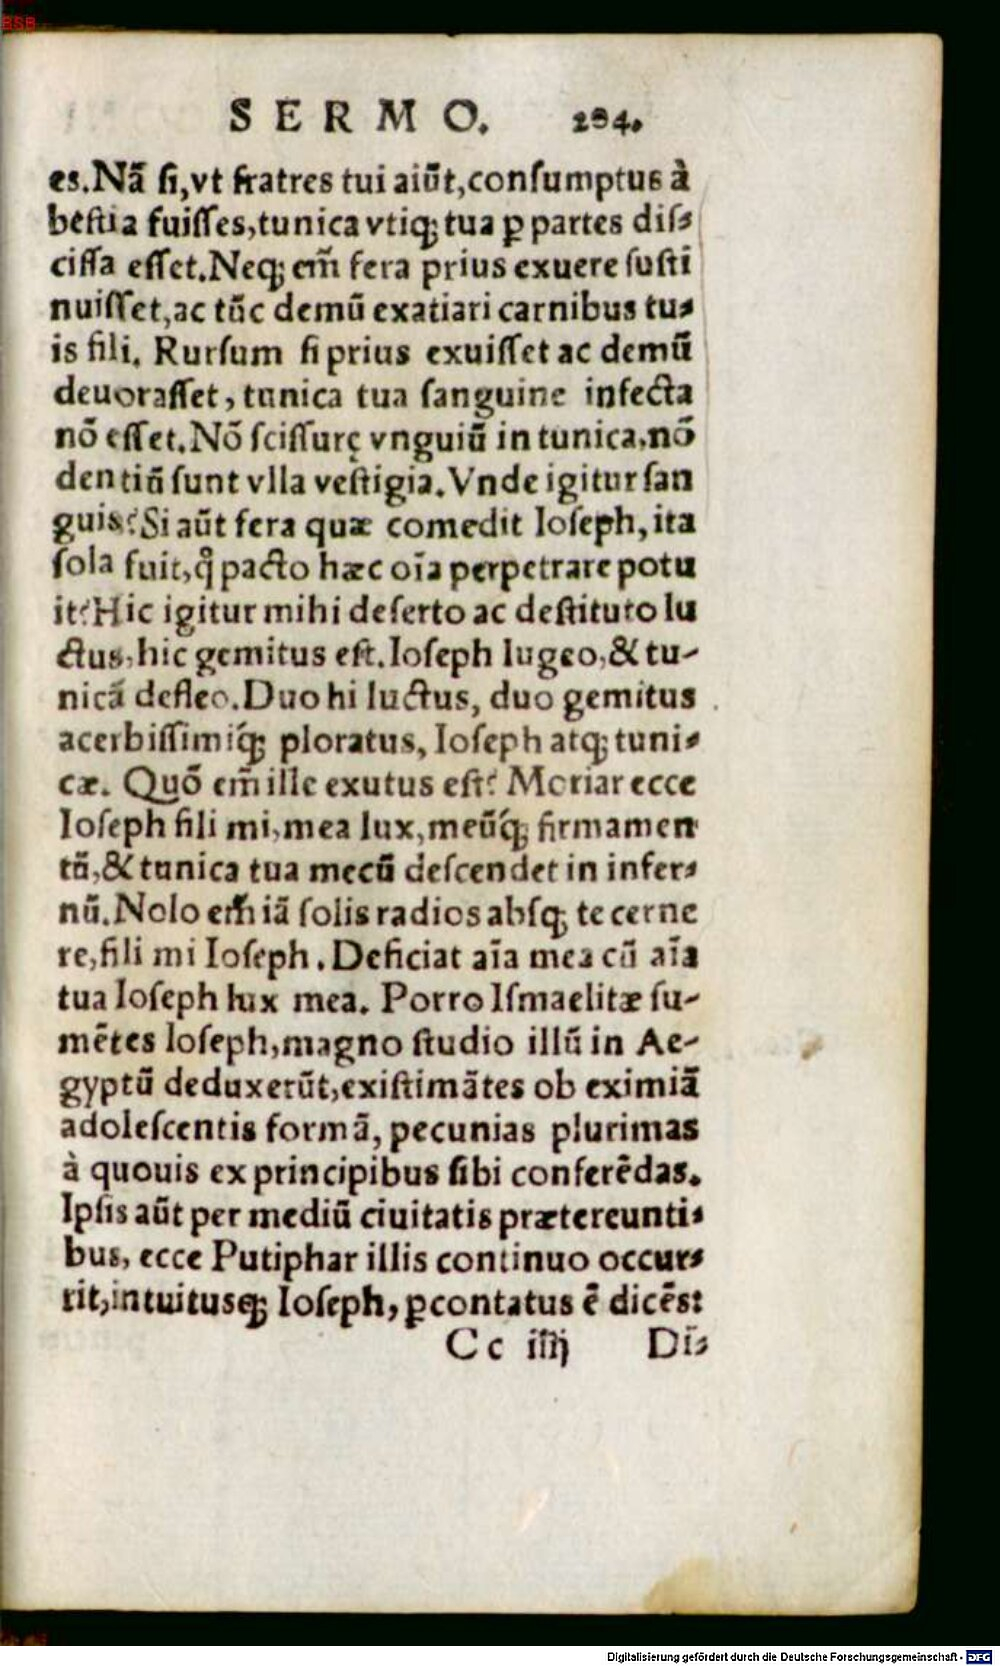 BSB
SERMO. 284.
es.Nã ſi,vt fratres tui aiūt,conſumptus à
beſtia fuiſſes,tunica vtiqꝫ tua ꝑ partes diſ⸗
ciſſa eſſet.Neqꝫ em̃ fera prius exuere ſuſti
nuiſſet,ac tūc demū exatiari carnibus tu⸗
is fili. Rurſum ſi prius exuiſſet ac demū
deuoraſſet, tunica tua ſanguine infecta
nō eſſet.Nō ſciſſurę vnguiū in tunica,nō
dentiū ſunt vlla veſtigia.Vnde igitur ſan
guis?Si aūt fera quæ comedit Ioſeph,ita
ſola fuit,q̊ pacto hæc oīa perpetrare potu
it?Hic igitur mihi deſerto ac deſtituto lu
ctus,hic gemitus eſt.Ioſeph lugeo,& tu-
nicā defleo.Duo hi luctus, duo gemitus
acerbiſſimíqꝫ ploratus, Ioſeph atqꝫ tuni⸗
cæ. Quō em̃ ille exutus eſt? Moriar ecce
Ioſeph fili mi,mea lux,meūqꝫ firmamen
tū,& tunica tua mecū deſcendet in infer⸗
nū.Nolo em̃ iā ſolis radios abſqꝫ te cerne
re,fili mi Ioſeph.Deficiat aīa mea cū aīa
tua Ioſeph lux mea. Porro Iſmaelitæ ſu-
mētes Ioſeph,magno ſtudio illū in Ae-
gyptū deduxerūt,exiſtimātes ob eximiā
adoleſcentis formā, pecunias plurimas
à quouis ex principibus ſibi conferēdas.
Ipſis aūt per mediū ciuitatis prætereunti⸗
bus, ecce Putiphar illis continuo occur⸗
rit,intuituſqꝫ Ioſeph, ꝑcontatus ē dicēs:
Cc iiij Di⸗
Digitalisierung gefördert durch die Deutsche Forschungsgemeinschaft - DFG